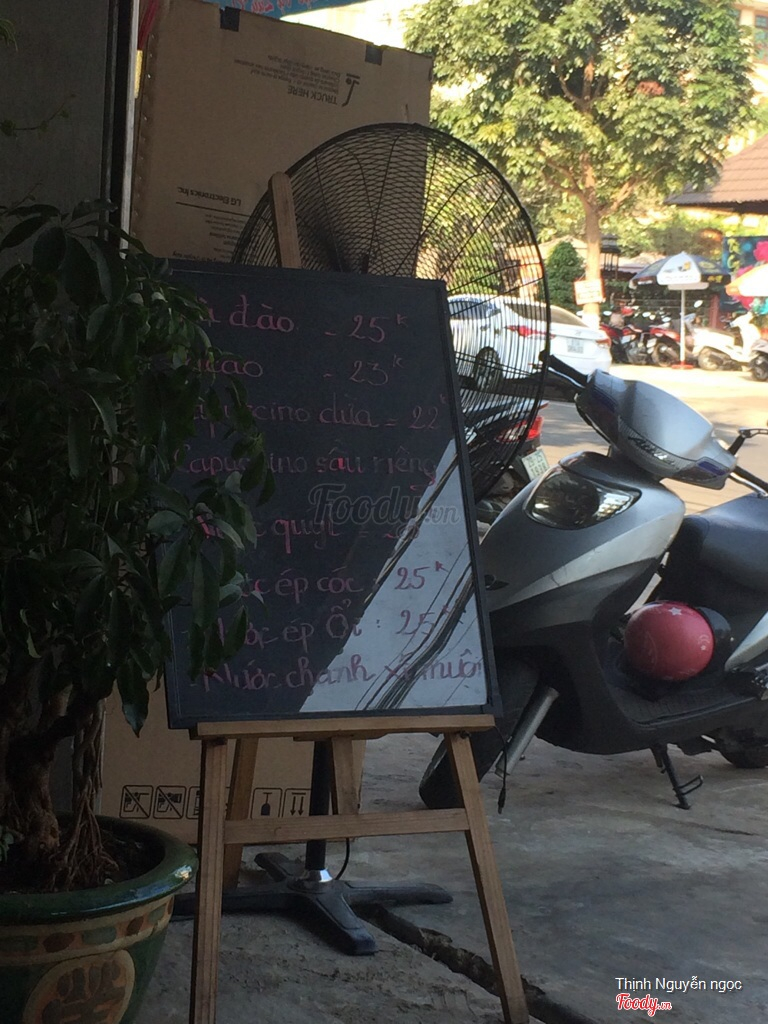 TRUCK HERE
LG Electronics Inc
đào - 25K
cacao - 23K
Capuccino dừa = 22K
Capuccino sầu riêng
Foody.vn
quýt =
ép cóc : 25K
Nước ép Ổi : 25K
Nước chanh xí muội
Thịnh Nguyễn ngọc
Foody.vn